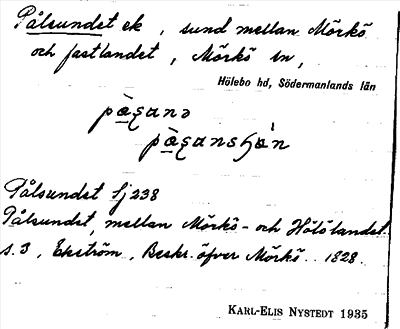 Pålsundet ek, sund mellan Mörkö
och fastlandet, Mörkö sn,
Hölebo hd, Södermanlands län
Pålsundet Sj 238
Pålsundet, mellan Mörkö- och Hölölandet.
s. 3, Ekström, Beskr. öfver Mörkö.. 1828.
KARL-ELIS NYSTEDT 1935